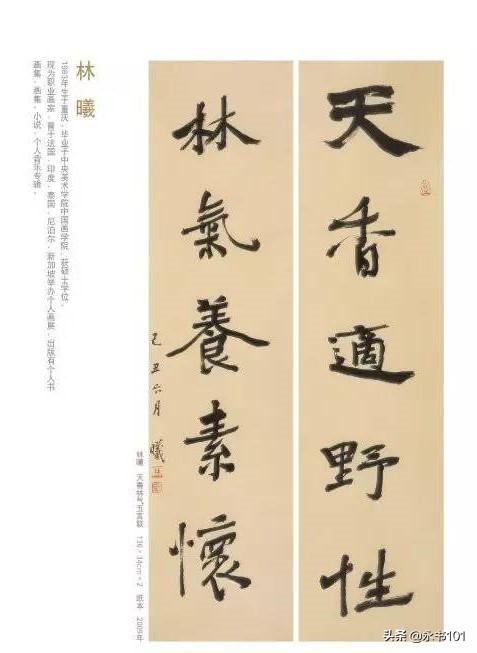 天香適野性
林氣養素懷
己丑六月 曦
林曦 天香林气五言联 136×34cm×2 纸本 2009年
林 曦
1983年生于重庆，毕业于中央美术学院中国画学院，获硕士学位。
现为职业画家，曾于法国、印度、泰国、尼泊尔、新加坡举办个人画展，出版有个人书
画集、画集、小说、个人音乐专辑。
头条 @永书101